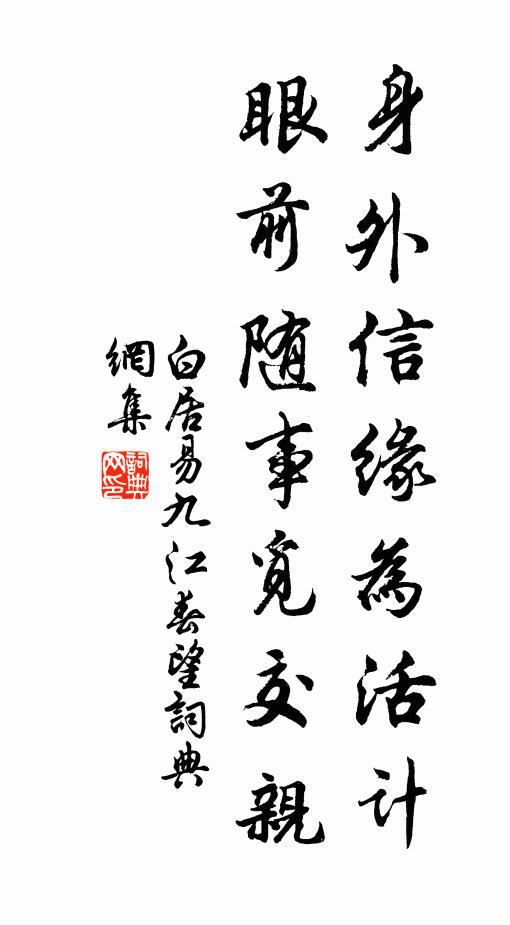 身外信緣為活計
眼前随事覓交親
白居易九江春望詞典
網集
詞典网印